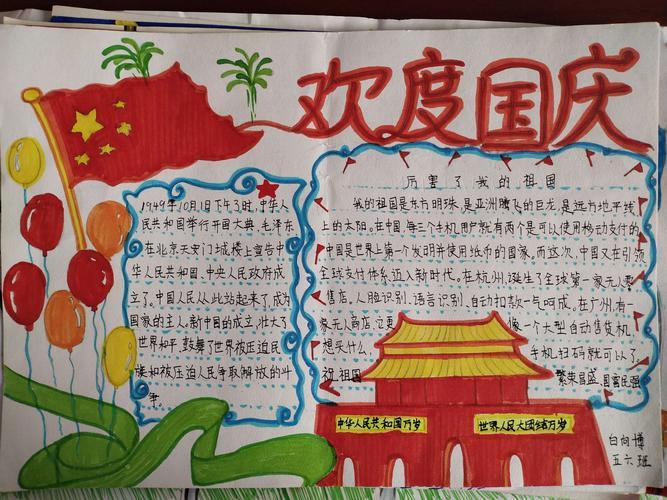 欢度国庆
1949年10月1日下午3时,中华人
民共和国举行开国大典,毛泽东
在北京天安门城楼上宣告中
华人民共和国,中央人民政府成
立了。中国人民从此站起来了,成为
国家的主人。新中国的成立,壮大了
世界和平,鼓舞了世界被压迫民
族和被压迫人民争取解放的斗
争。
厉害了我的祖国
我的祖国是东方明珠,是亚洲腾飞的巨龙,是远方地平线
上的太阳。在中国,每三个手机用户就有两个是可以使用移动支付的
中国是世界上第一个发明并使用纸币的国家。而这次,中国又在引领
全球支付体系迈入新时代。在杭州,诞生了全球第一家无人零
售店。人脸识别,语言识别,自动扣款一气呵成。在广州,有一
家无人商店,它更像一个大型自动售货机
想买什么,手机扫码就可以了。
祝祖国繁荣昌盛,国富民强
中华人民共和国万岁
世界人民大团结万岁
白向博
五六班